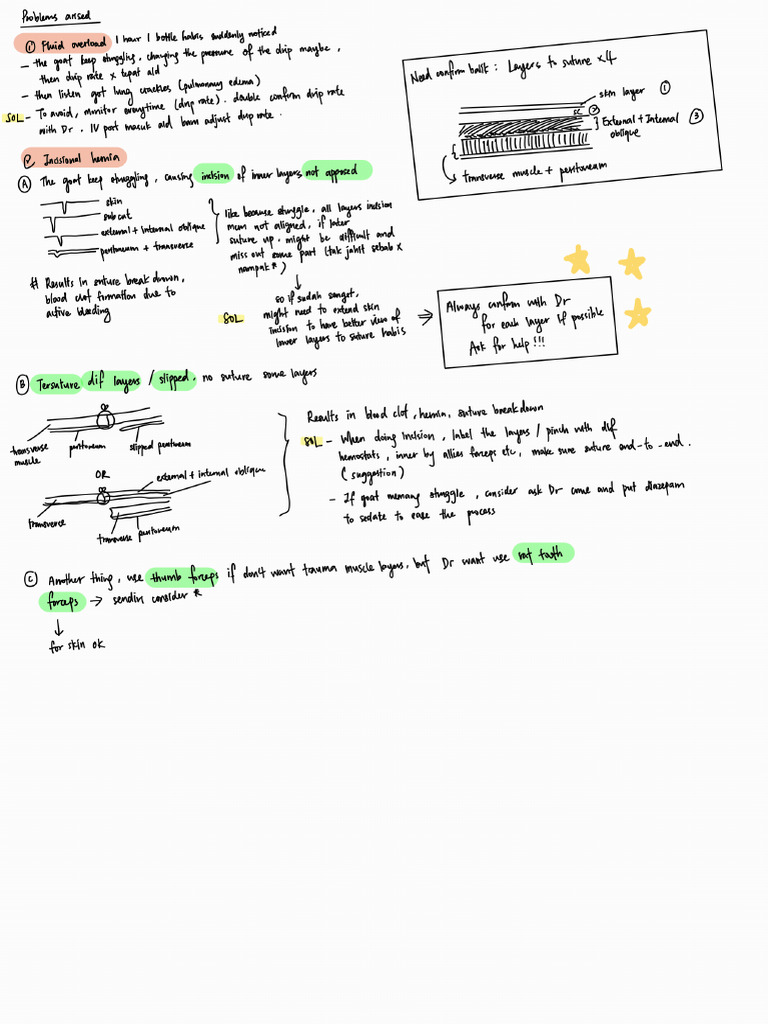 Problems arised
① Fluid overload 1 hour 1 bottle habis suddenly noticed
- the goat keep struggling, changing the pressure of the drip maybe,
then drip rate x tepat ald
- then listen got lung crackles (pulmonary edema)
SOL - To avoid, monitor everytime (drip rate). double confirm drip rate
with Dr. IV part masuk ald baru adjust drip rate.
Need confirm balik : Layers to suture x4
skin layer ①
SC ②
External + Internal ③
oblique
transverse muscle + peritoneum
② Incisional hernia
Ⓐ The goat keep struggling, causing incision of inner layers not apposed
skin
subcut
external + internal oblique
peritoneum + transverse
like because struggle, all layers incision
mcm not aligned, if later
suture up, might be difficult and
miss out some part (tak jahit sebab x
nampak *)
# Results in suture break down,
blood clot formation due to
active bleeding
SOL
so if sudah sangat,
might need to extend skin
incision to have better view of
inner layers to suture habis
⇒
Always confirm with Dr
for each layer if possible
Ask for help !!!
Ⓑ Tersuture dif layers / slipped, no suture some layers
transverse
muscle
peritoneum
slipped peritoneum
OR
external + internal oblique
transverse
transverse peritoneum
Results in blood clot, hernia, suture breakdown
SOL - When doing incision, label the layers / pinch with dif
hemostats, inner by allies forceps etc, make sure suture end-to-end.
(suggestion)
- If goat memang struggle, consider ask Dr come and put diazepam
to sedate to ease the process
Ⓒ Another thing, use thumb forceps if don't want trauma muscle layers, but Dr want use rat tooth
forceps → sendiri consider *
for skin ok